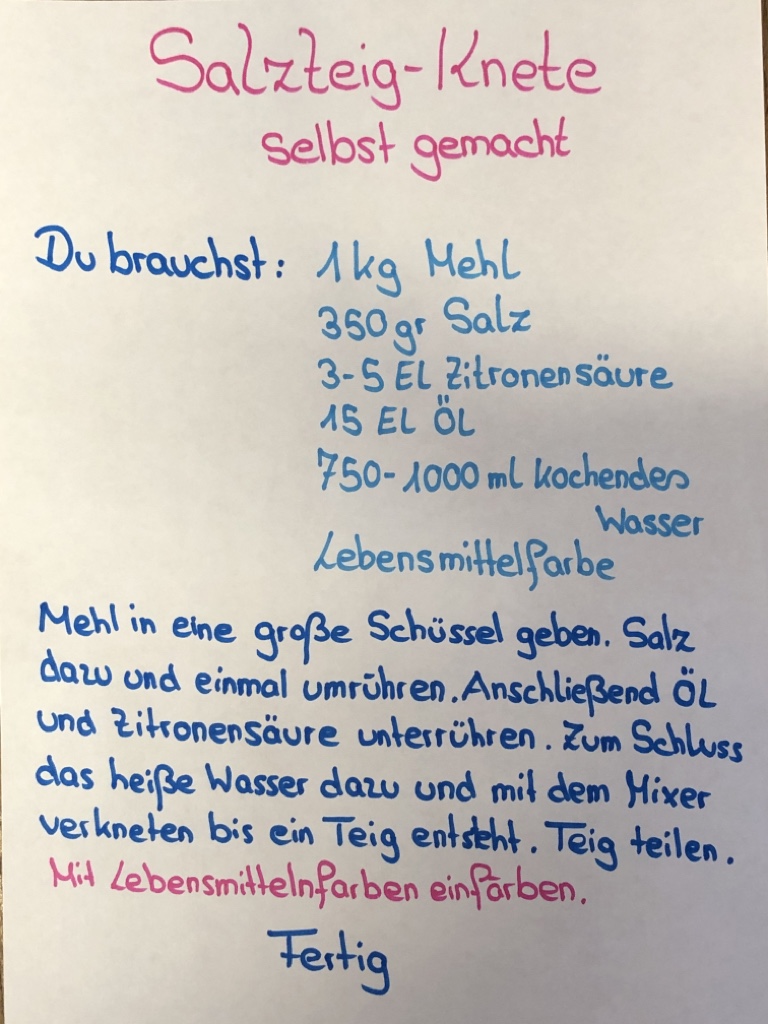 Salzteig-Knete
selbst gemacht
Du brauchst: 1kg Mehl
350gr Salz
3-5 EL Zitronensäure
15 EL ÖL
750-1000 ml kochendes
Wasser
Lebensmittelfarbe
Mehl in eine große Schüssel geben. Salz
dazu und einmal umrühren. Anschließend ÖL
und Zitronensäure unterrühren. Zum Schluss
das heiße Wasser dazu und mit dem Mixer
verkneten bis ein Teig entsteht. Teig teilen.
Mit Lebensmittelnfarben einfärben.
Fertig